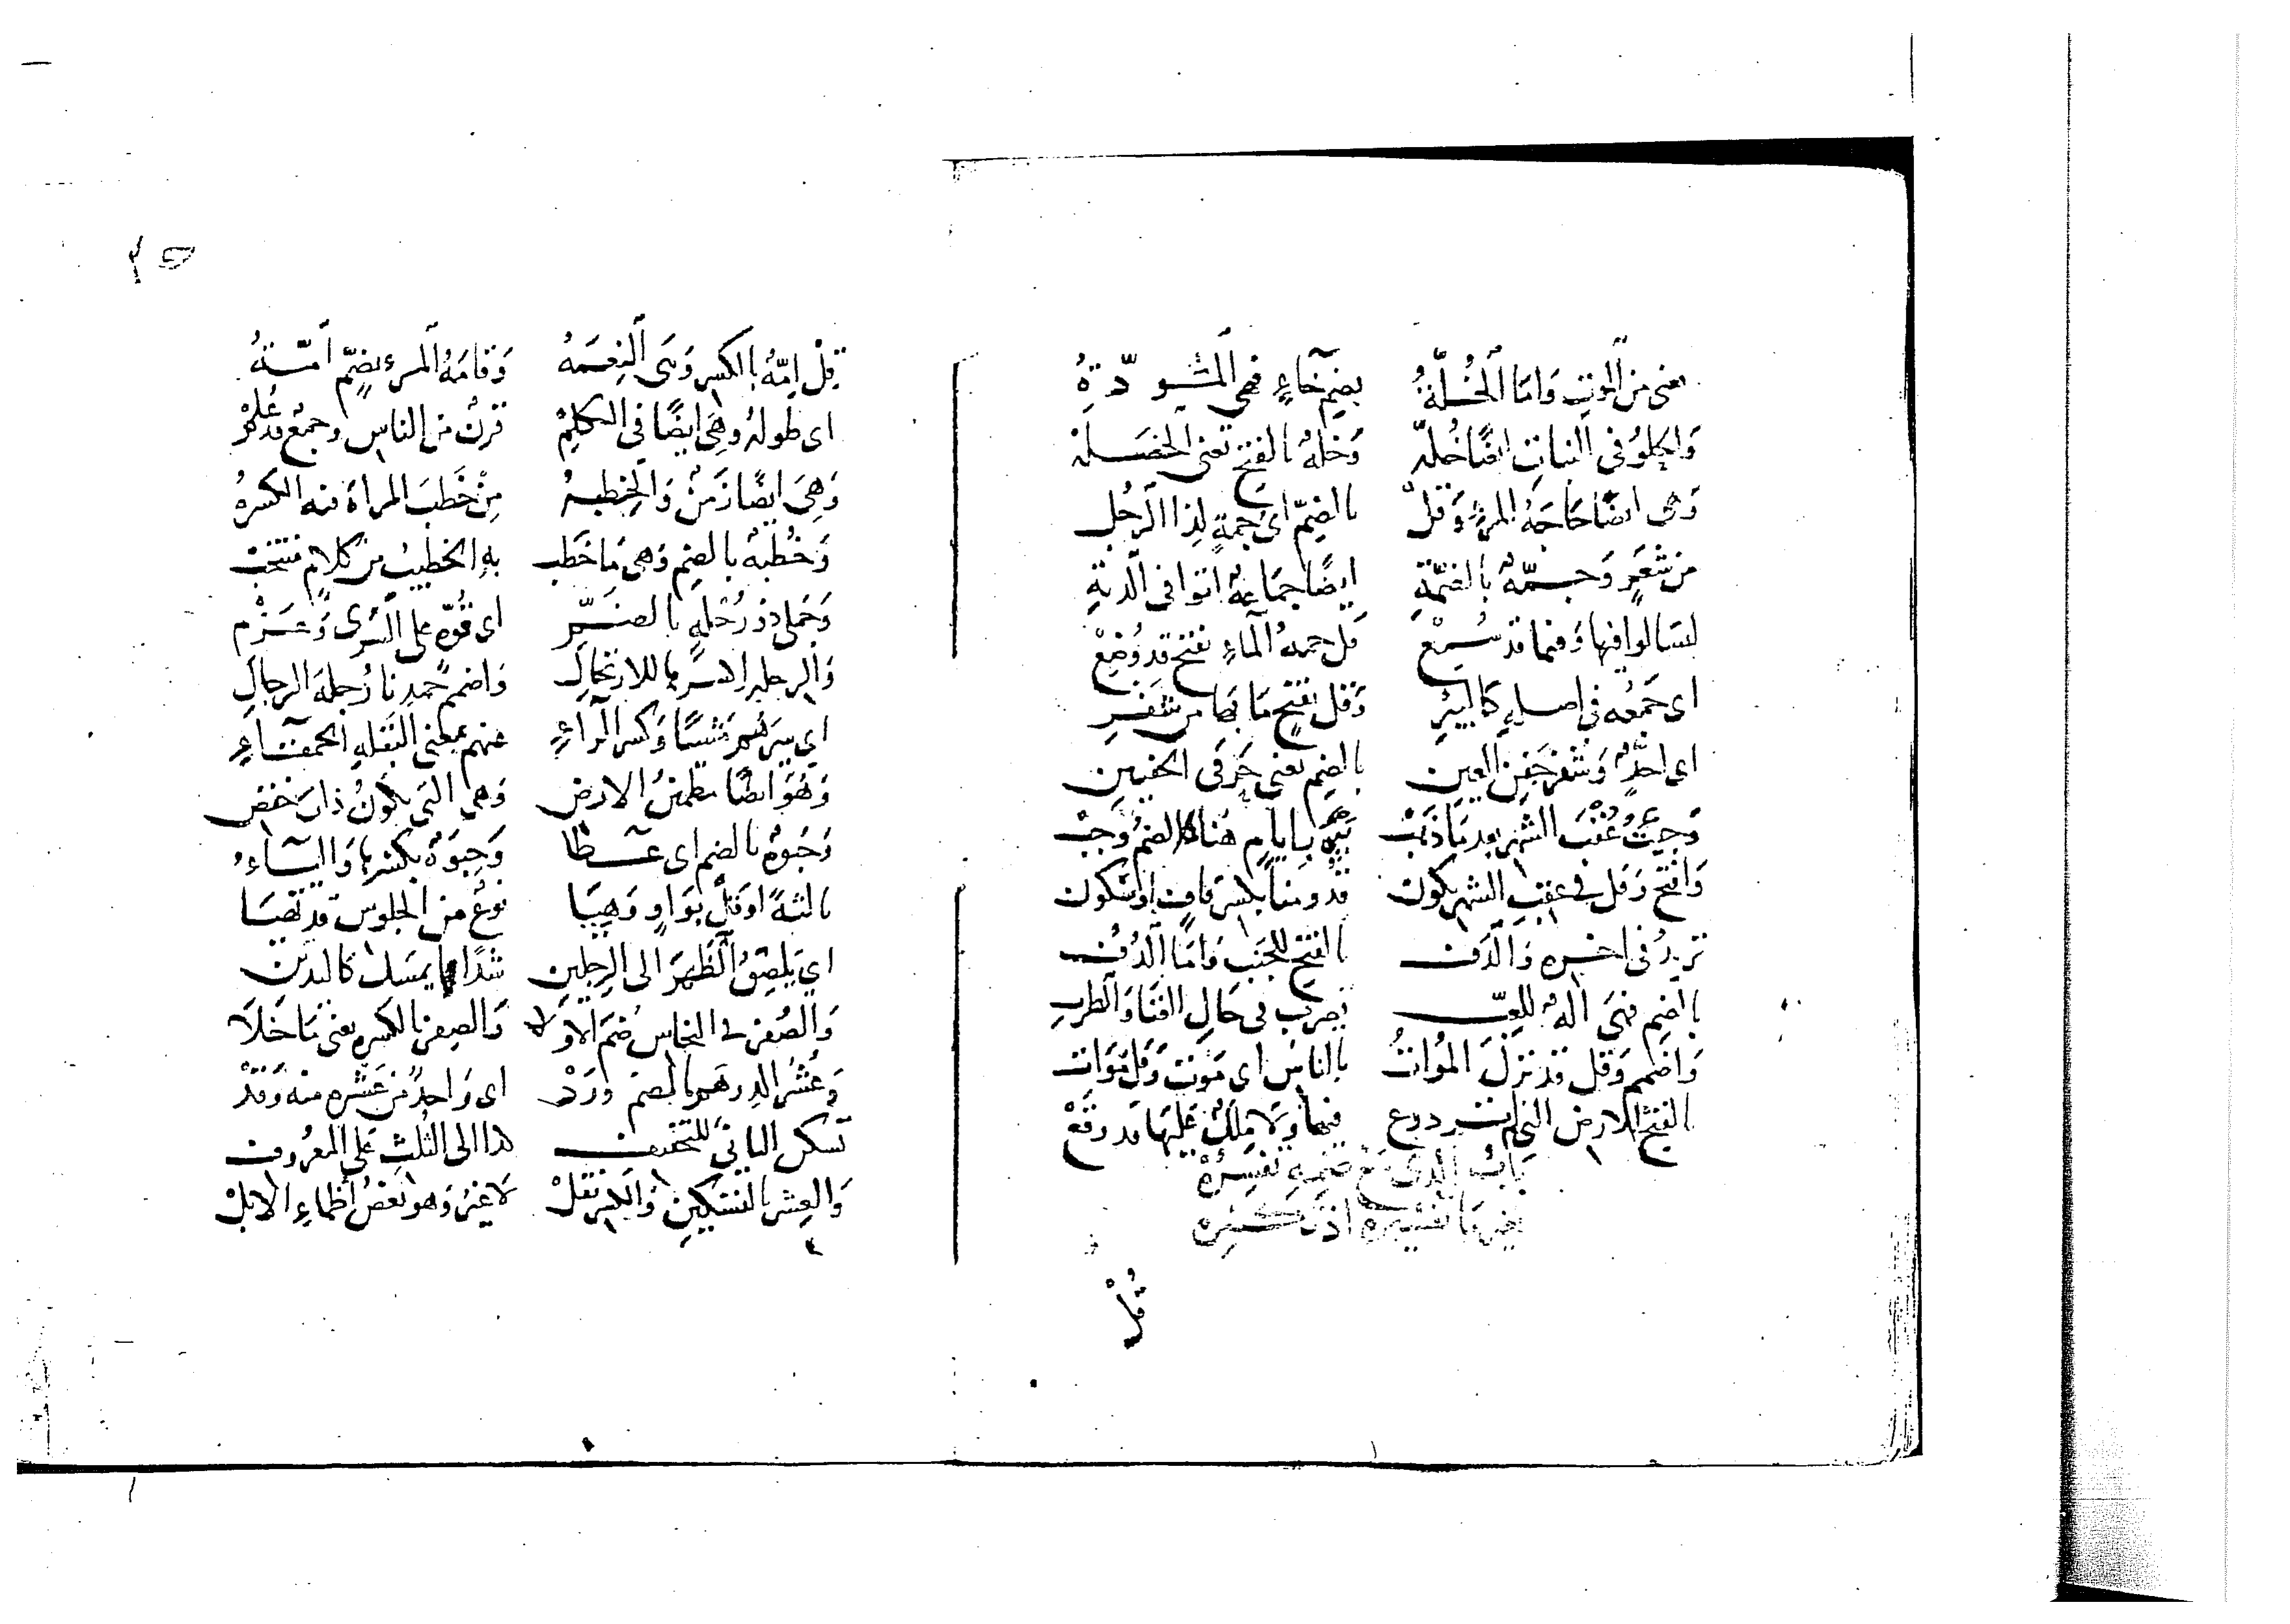 يعنى من الموت وَامَا اَلخُلَّةُ بضم خَاءٍ فهى المَودّةُ
وَالحلوُ فى النبات ايضًا خُلَّه وَخلهُ بالفتح تعنى الخَصَـلَهْ
وَهى ايضًا حَاجَةُ المرءِ وَقلْ بالضمّ اى جمةٍ لِذا الرجُل
من شَعَرٍ وَجـمّةٌ بالضمّةِ ايضًا جمَاعةٌ اتوا فى الديةِ
ليسَالوا فيها وَفيما قدْ سُمِعْ قل جمةُ الماءِ بفتحٍ قد وُضِعْ
اى جَمْعُه فى اصـلِهِ كَالبئرِ وَقل بفتحٍ مَا بها من شَفـرِ
اى احَدٌ وَشفرُ جَفنِ العين بالضم يعنى حَرفَى الجفنين
وَجِئتُ عُقْبَ الشهر بعد مَا ذهَبْ بَايامٍ هُنا الضمُ وَجَبْ
وَافتح وَقل فى عقِبِ الشهر يكون قدومنا بكسر قافٍ او سكون
تريدُ فى اخـره وَالدَف بالفتح للجَنبِ وَامَا الدُفـ
بالضم فهىَ آلةُ اللعِبـ تضربُ فى حَالِ الغنَا وَالطرب
وَاضمم وَقل قد نزلَ المُواتُ بالناسِ اى مَوت وَقل مَوَات
بالفتح للارض التى لم تـزدرع فيها وَلا مِلكٌ عَليْهَا قد وقَعْ
بابُ الذى مَعْ ضمهِ تفسِيرُهْ
غير مَا تفسيرهُ اذ تكـسِرهْ
قُلْ
٢٥
قلْ اِمّةٌ بالكسر وَهى النِعمَهْ وَقامَةُ المرءِ بضمٍّ اُمّـهُ
اى طولهُ وهِىَ ايضًا فى الكلِمْ قرنٌ من الناس وجمْعٌ قد عُلِمْ
وَهِىَ ايضًا زَمَنٌ وَالخِطبهْ مِنْ خَطبَ المراةَ فيه الكسرهْ
وَخُطبةٌ بالضم وَهى مَا خَطب بهِ الخطيبُ من كلامٍ منتخَبْ
وَجَملى ذو رُحْلةٍ بالضـمّ اى قُوّهٍ على السُّرى وَعـزْم
وَالرحلهِ اكسر للارتحَالِ وَاضمم حمدنا رُجلةَ الرجالِ
اى سيرَهُم مَشيًا وَكسر الرَاءِ منهم بمعنى البَقلةِ الحمقـاءِ
وَهُوَ ايضًا مطمئنُ الارضِ وَهى التى يكونُ ذات خفضِ
وَحُبوَةٌ بالضم اى عـطا وَحِبوَةٌ بكسرها وَاليـاءُ
اوقلْ بوَاوٍ وَهيَا نوعٌ من الجلوس قد نصبَا
اى يَلصِقُ الظهرَ الى الرجلين شدًا بما يمسَك كاليدين
وَالصُفرُ فى النحاس ضم الاوَّلا وَالصِفر بالكسر يعنى مَا خَلَا
وَعُشرُ الدرهَم بالضم وَرَدْ اى وَاحدٌ من عَشره منه وَقَدْ
تسكن الثانى للتخفيفـ هذا الى الثلثِ عَلى المعرُوفـ
وَالعِشر بالتسكينِ وَالكسر نقلْ لا غيرُ وَهو بَعضُ اَظماءِ الابلْ